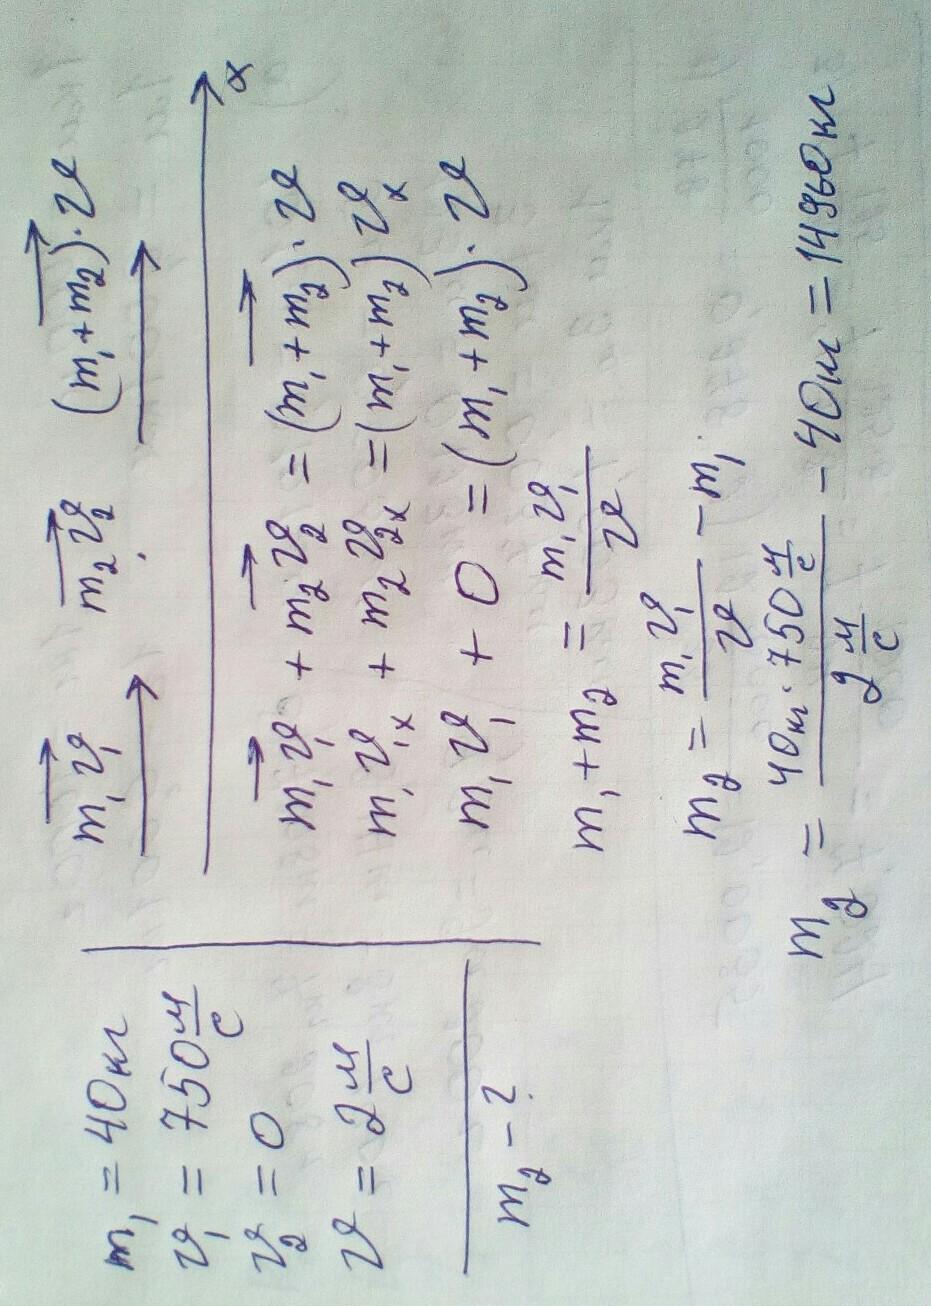 m₁ = 40кг
𝒱₁ = 750 м/с
𝒱₂ = 0
𝒱 = 2 м/с
m₂ – ?
m₁𝒱₁ m₂𝒱₂ (m₁+m₂)·𝒱
x
m₁𝒱₁ + m₂𝒱₂ = (m₁+m₂)·𝒱
m₁𝒱₁ₓ + m₂𝒱₂ₓ = (m₁+m₂)𝒱ₓ
m₁𝒱₁ + 0 = (m₁+m₂)·𝒱
m₁+m₂ = m₁𝒱₁/𝒱
m₂ = m₁𝒱₁/𝒱 – m₁
m₂ = 40кг·750 м/с / 2 м/с – 40кг = 14960кг